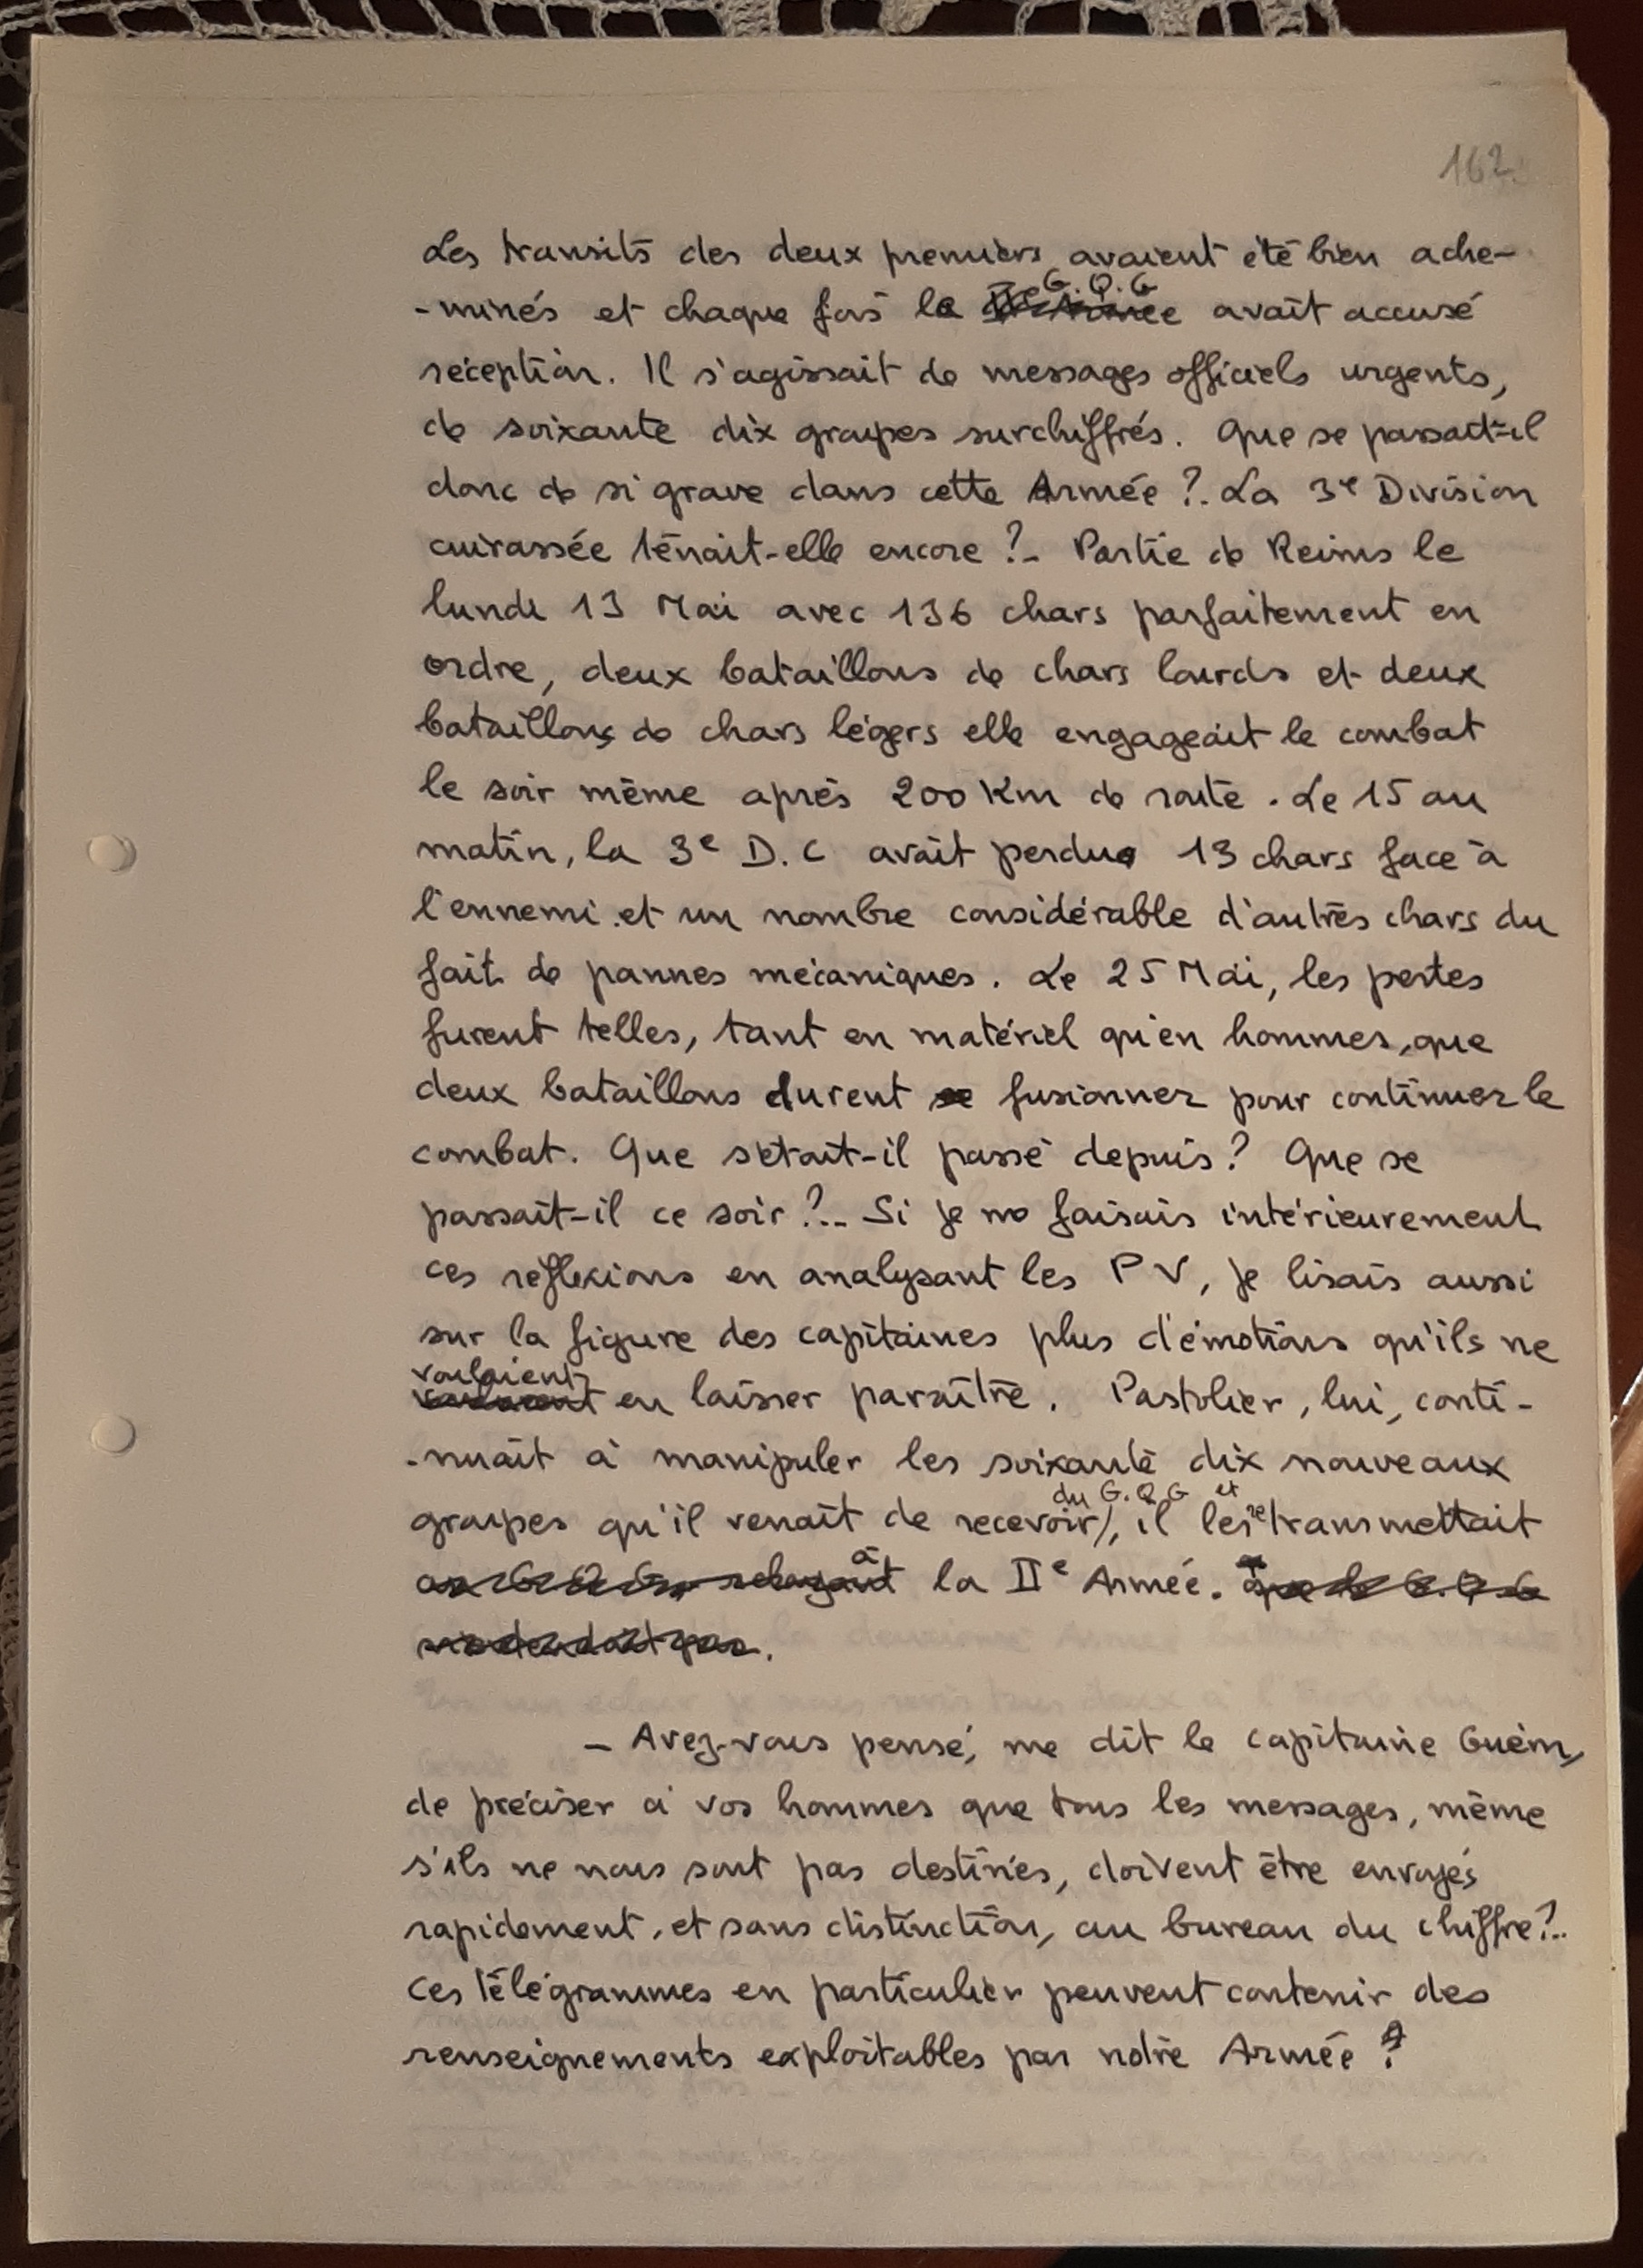 162
Les transits des deux premiers avaient été bien ache-
-minés et chaque fois le G.Q.G avait accusé
réception. Il s'agissait de messages officiels urgents,
de soixante dix groupes surchiffrés. Que se passait-il
donc de si grave dans cette Armée ?. La 3e Division
cuirassée tenait-elle encore ?- Partie de Reims le
lundi 13 Mai avec 136 chars parfaitement en
ordre, deux bataillons de chars lourds et deux
bataillons de chars légers elle engageait le combat
le soir même après 200 Km de route. Le 15 au
matin, la 3e D.C avait perdu 13 chars face à
l'ennemi et un nombre considérable d'autres chars du
fait de pannes mécaniques. Le 25 Mai, les pertes
furent telles, tant en matériel qu'en hommes, que
deux bataillons durent fusionner pour continuer le
combat. Que s'était-il passé depuis ? Que se
passait-il ce soir ?.. Si je me faisais intérieurement
ces réflexions en analysant les PV, je lisais aussi
sur la figure des capitaines plus d'émotions qu'ils ne
voulaient en laisser paraître. Pastolier, lui, conti-
-nuait à manipuler les soixante dix nouveaux
groupes qu'il venait de recevoir du G.Q.G et il les retransmettait
à la IIe Armée.
- Avez-vous pensé, me dit le capitaine Guém,
de préciser à vos hommes que tous les messages, même
s'ils ne nous sont pas destinés, doivent être envoyés
rapidement, et sans distinction, au bureau du chiffre ?..
Ces télégrammes en particulier peuvent contenir des
renseignements exploitables par notre Armée ?